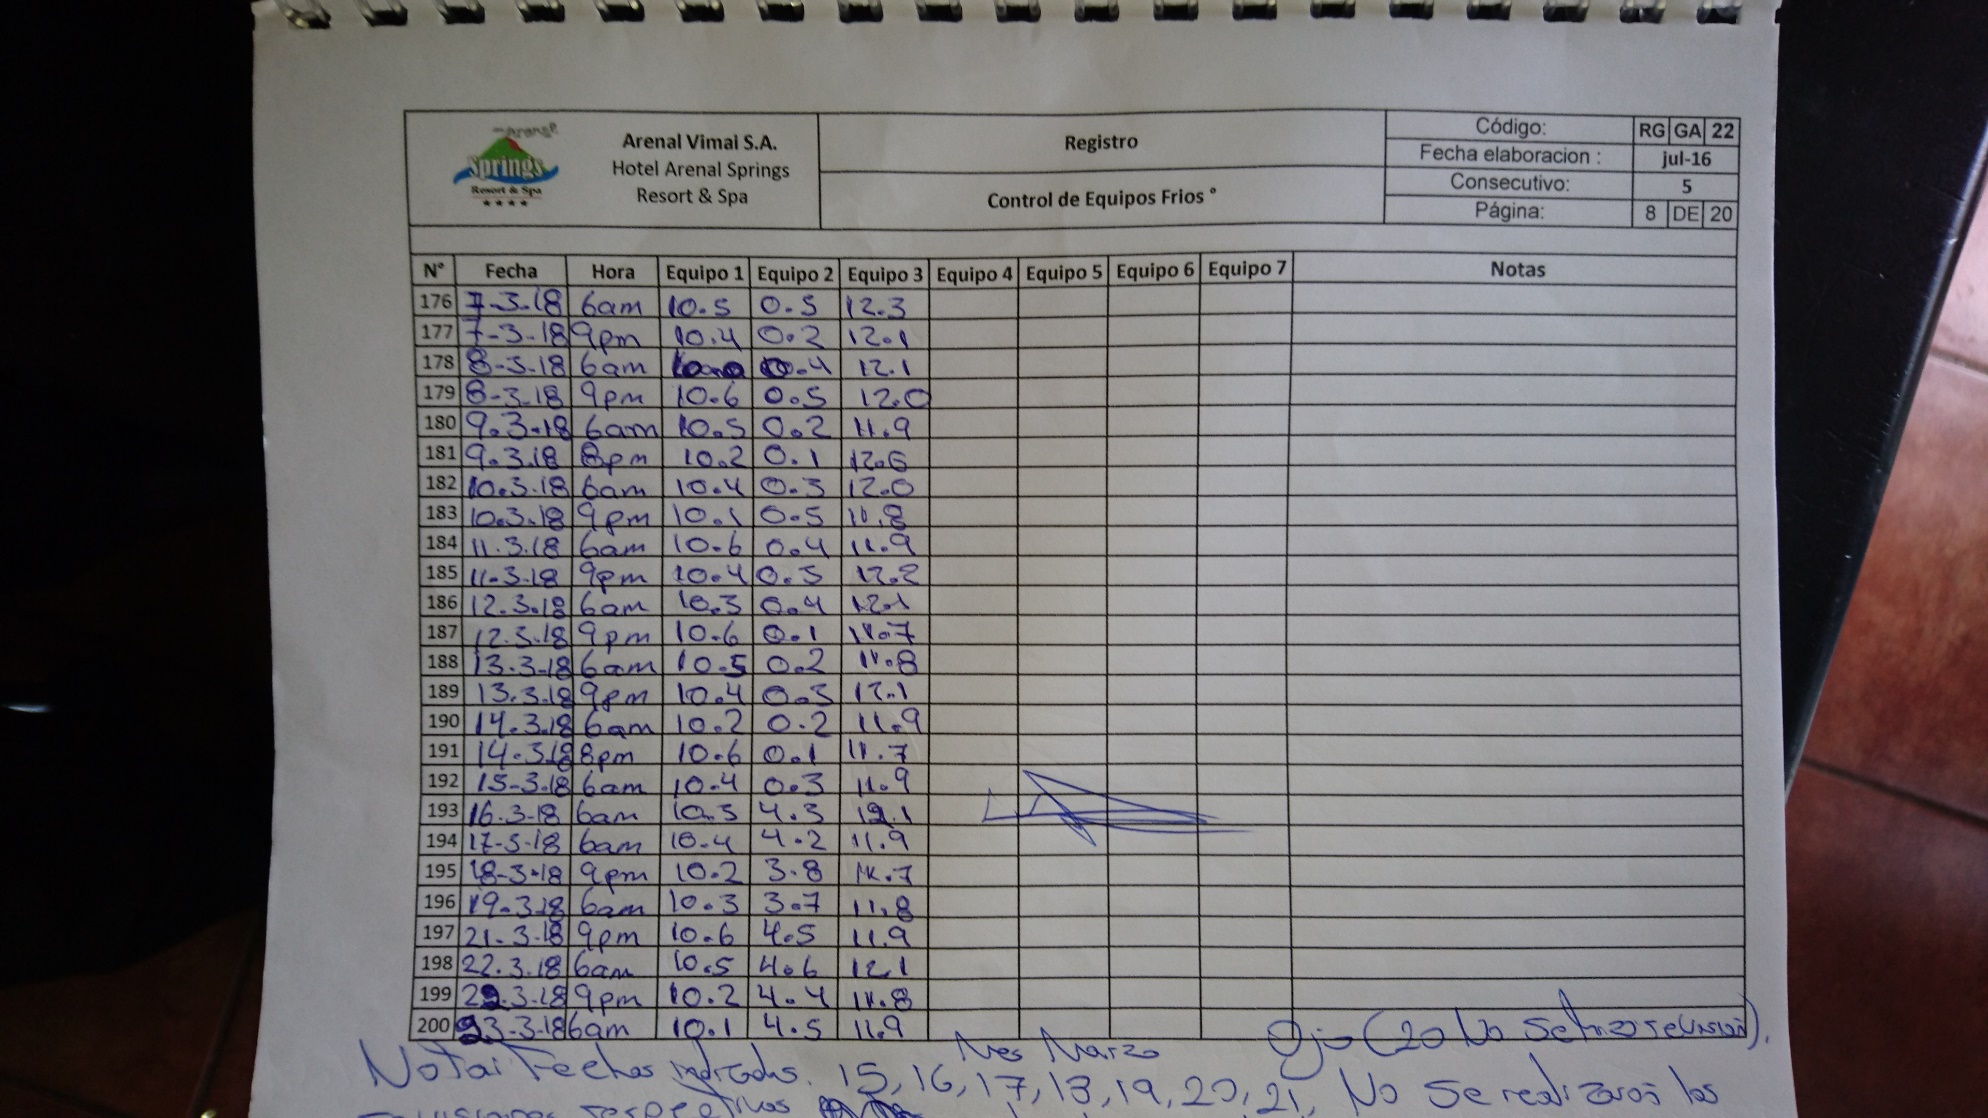 Arenal
Springs
Resort & Spa
Arenal Vimai S.A.
Hotel Arenal Springs
Resort & Spa
Registro
Control de Equipos Frios °
Código: RG GA 22
Fecha elaboracion : jul-16
Consecutivo: 5
Página: 8 DE 20
N° Fecha Hora Equipo 1 Equipo 2 Equipo 3 Equipo 4 Equipo 5 Equipo 6 Equipo 7 Notas
176 7-3.18 6am 10.5 0.5 12.3
177 7-3-18 9pm 10.4 0.2 12.1
178 8-3-18 6am 0.4 12.1
179 8-3-18 9pm 10.6 0.5 12.0
180 9.3.18 6am 10.5 0.2 11.9
181 9.3.18 8pm 10.2 0.1
182 10.3.18 6am 10.4 0.3 12.0
183 10.3.18 9pm 10.1 0.5 11.8
184 11.3.18 6am 10.6 0.4 11.9
185 11-3-18 9pm 10.4 12.2
186 12.3.18 6am 10.3 0.4 12.1
187 12.3.18 9pm 10.6 0.1 11.7
188 13.3-18 6am 10.5 0.2 11.8
189 13.3.18 9pm 10.4 0.3 12.1
190 14.3.18 6am 10.2 0.2 11.9
191 14.3.18 8pm 10.6 0.1 11.7
192 15-3.18 6am 10.4 0.3 11.9
193 16.3-18 6am 10.3 4.3 12.1
194 17-3-18 6am 10.4 4.2 11.9
195 18-3-18 9pm 10.2 3.8 11.7
196 19.3.18 6am 10.3 3.7 11.8
197 21.3.18 9pm 10.6 4.5 11.9
198 22.3.18 6am 10.5 4.6 12.1
199 22.3-18 9pm 10.2 4.4 11.8
200 23-3-18 6am 10.1 4.5 11.9
Mes Marzo Ojo (20 No se hizo revision).
Nota: Fechas indicadas. 15, 16, 17, 18, 19, 20, 21, No se realizaron las
revisiones respectivas